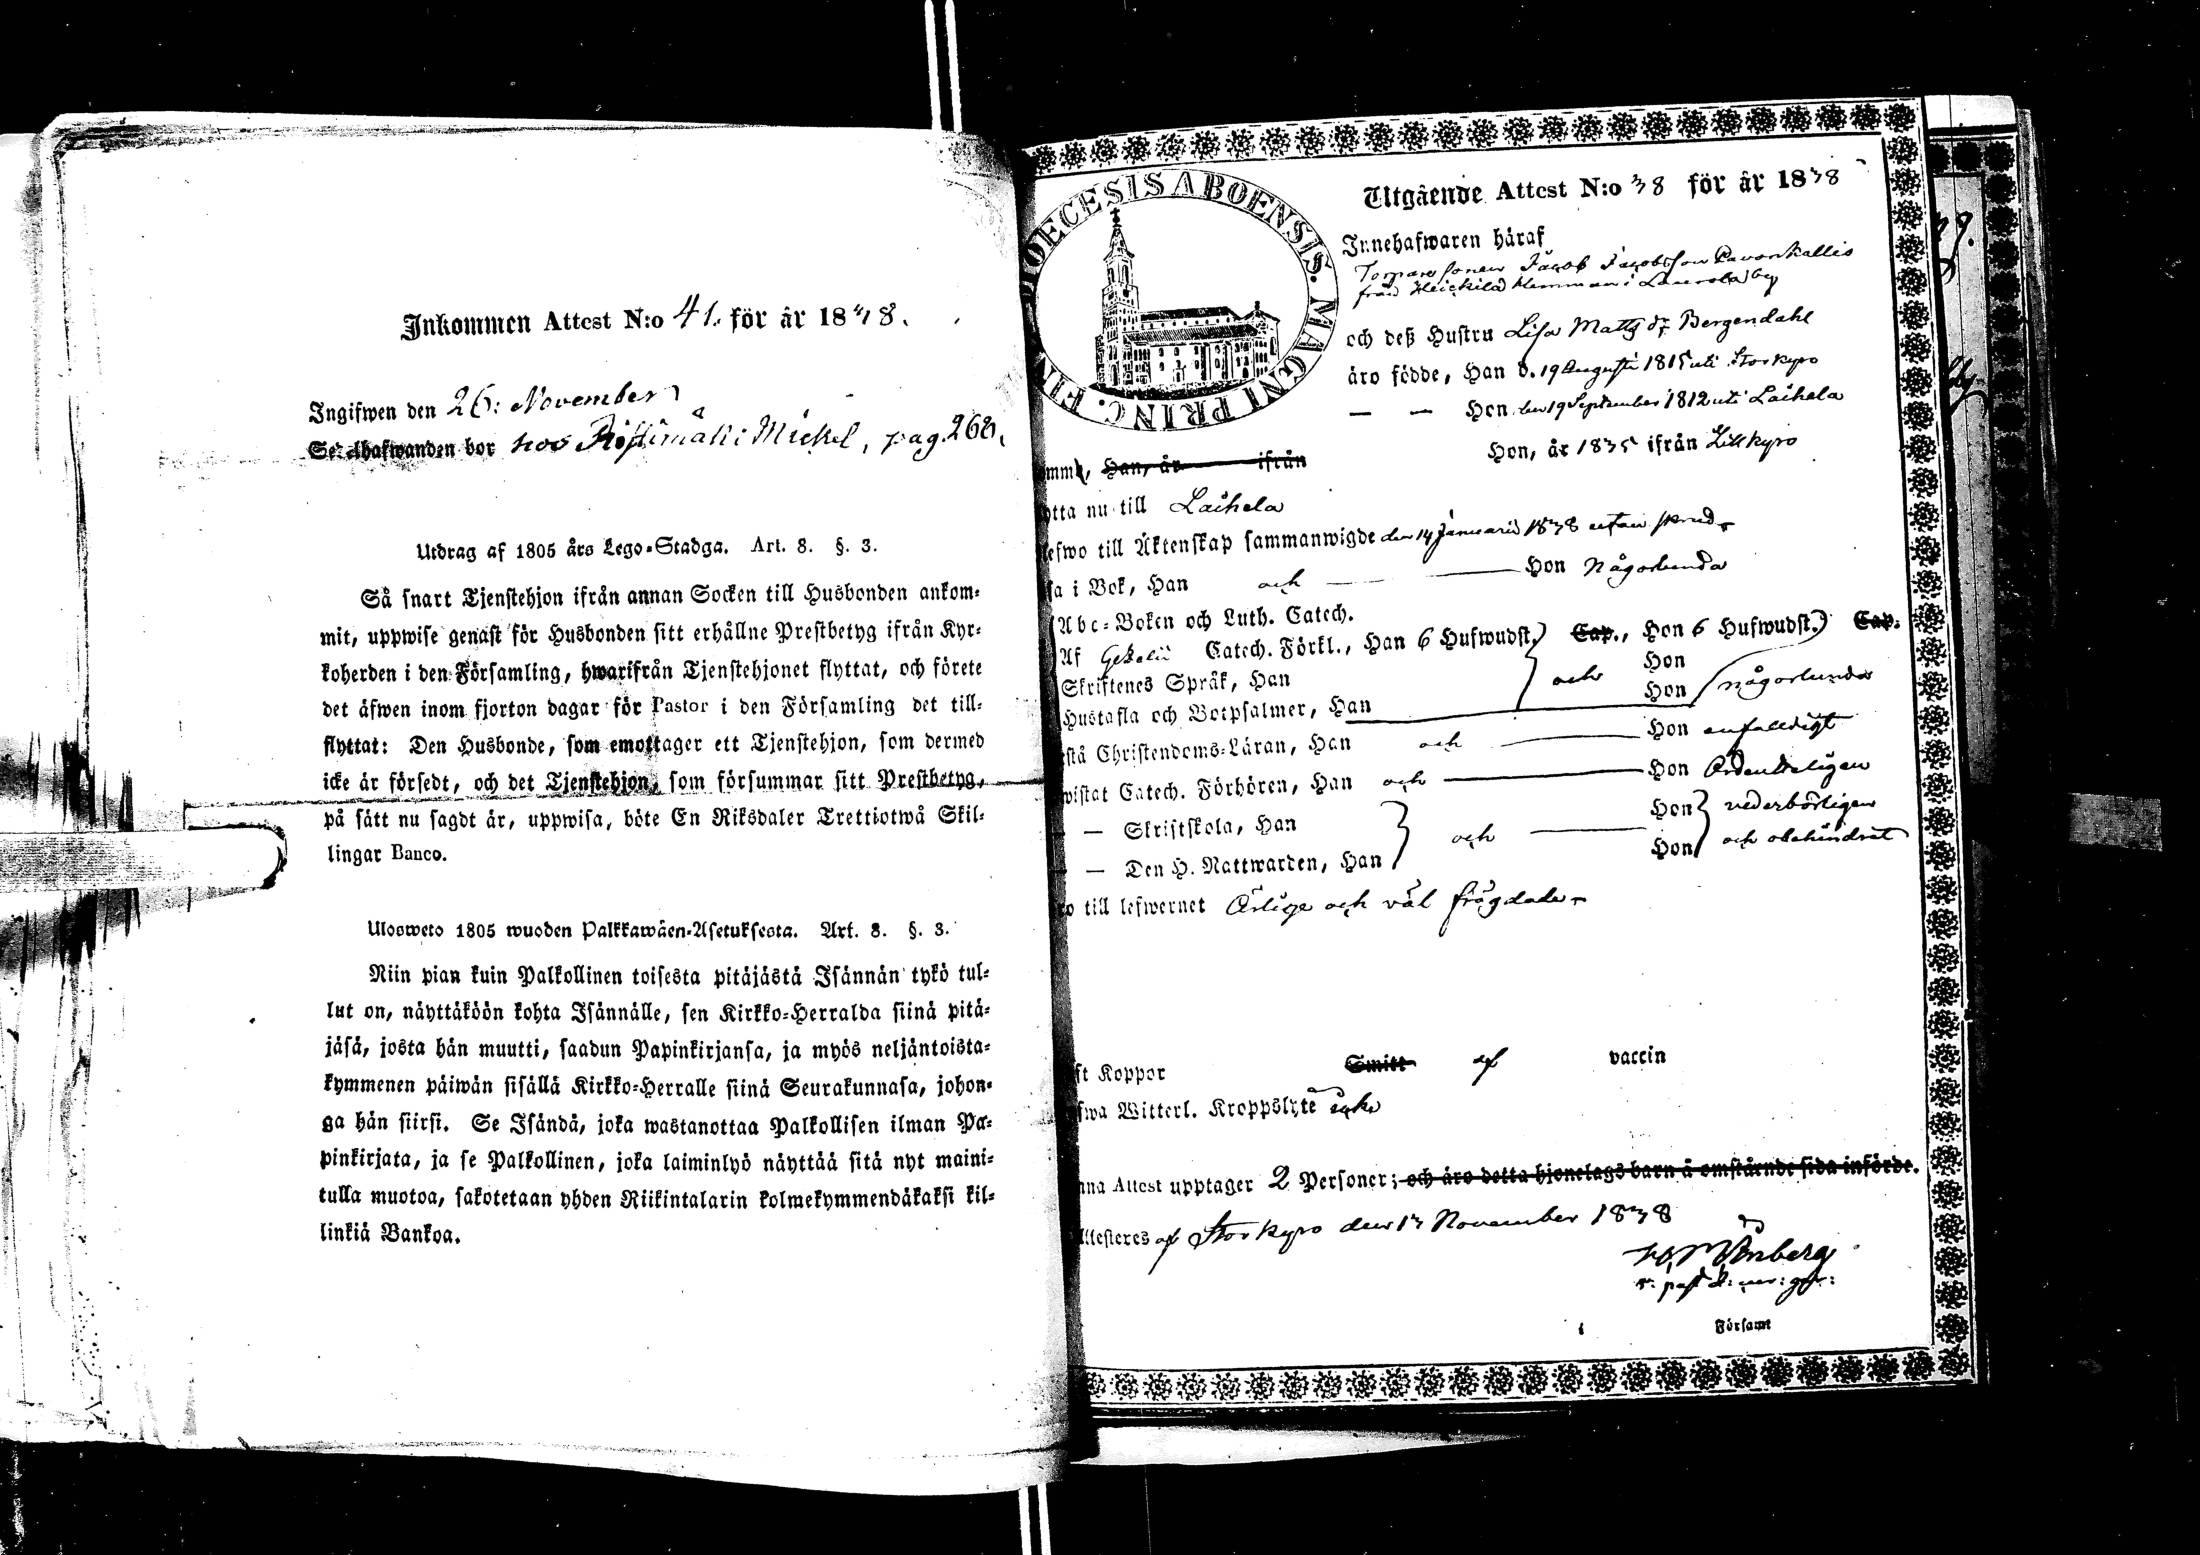 Inkommen Attest N:o 41. för år 1838.
Ingifwen den 26: November
hafwanden bor hos Ristimäki Mickel, pag. 268.
Utdrag af 1805 års Lego-Stadga. Art. 8. §. 3.
Så snart Tjenstehjon ifrån annan Socken till Husbonden ankom-
mit, uppwise genast för Husbonden sitt erhållne Prestbetyg ifrån Kyr-
koherden i den Församling, hwarifrån Tjenstehjonet flyttat, och förete
det äfwen inom fjorton dagar för Pastor i den Församling det till-
flyttat: Den Husbonde, som emottager ett Tjenstehjon, som dermed
icke är försedt, och det Tjenstehjon, som försummar sitt Prestbetyg,
på sätt nu sagdt är, uppwisa, böte En Riksdaler Trettiotwå Skil-
lingar Banco.
Ulosweto 1805 wuoden Palkkawäen-Asetuksesta. Art. 8. §. 3.
Niin pian kuin Palkollinen toisesta pitäjästä Isännän tykö tul-
lut on, näyttäköön kohta Isännälle, sen Kirkko-Herralda siinä pitä-
jäsä, josta hän muutti, saadun Papinkirjansa, ja myös neljäntoista-
kymmenen päiwän sisällä Kirkko-Herralle siinä Seurakunnasa, johon-
ga hän siirsi. Se Isändä, joka wastanottaa Palkollisen ilman Pa-
pinkirjata, ja se Palkollinen, joka laiminlyö näyttää sitä nyt maini-
tulla muotoa, sakotetaan yhden Riikintalarin kolmekymmendäkaksi kil-
linkiä Bankoa.
DIOECESIS ABOENSIS. MAGNI PRINC. FIN
Utgående Attest N:o 38 för år 1838
Innehafwaren häraf
Torpare sonen Jacob Jacobsson Pavonkallis
från Heickilä Hemman i Laurola by
och deß Hustru Lisa Matts dr Bergendahl
äro födde, Han d. 19 Augusti 1815 uti Storkyro
— — Hon den 19 September 1812 uti Laihela
omm, Han, år ifrån Hon, år 1835 ifrån Lillkyro
ytta nu till Laihela
lefwo till Äktenskap sammanwigde den 14 Januarii 1838 utan
sa i Bok, Han och — Hon någorlunda
Abc-Boken och Luth. Catech.
Af Gezelii Catech. Förkl., Han 6 Hufwudst. Cap., Hon 6 Hufwudst. Cap.
Skriftenes Språk, Han och Hon
Hustafla och Botpsalmer, Han Hon någorlunda
stå Christendoms-Läran, Han och — Hon enfaldigt
wistat Catech. Förhören, Han och — Hon Ordenteligen
— Skriftskola, Han och — Hon vederbörligen
— Den H. Nattwarden, Han Hon och obehindrat
ro till lefwernet Ärlige och väl frägdade
ft Koppor Smitt af vaccin
fwa Witterl. Kroppslyte icke
nna Attest upptager 2 Personer; och äro detta hjonelags barn å omstående sida införde.
ttesteres af Storkyro den 13 November 1838
i Församl